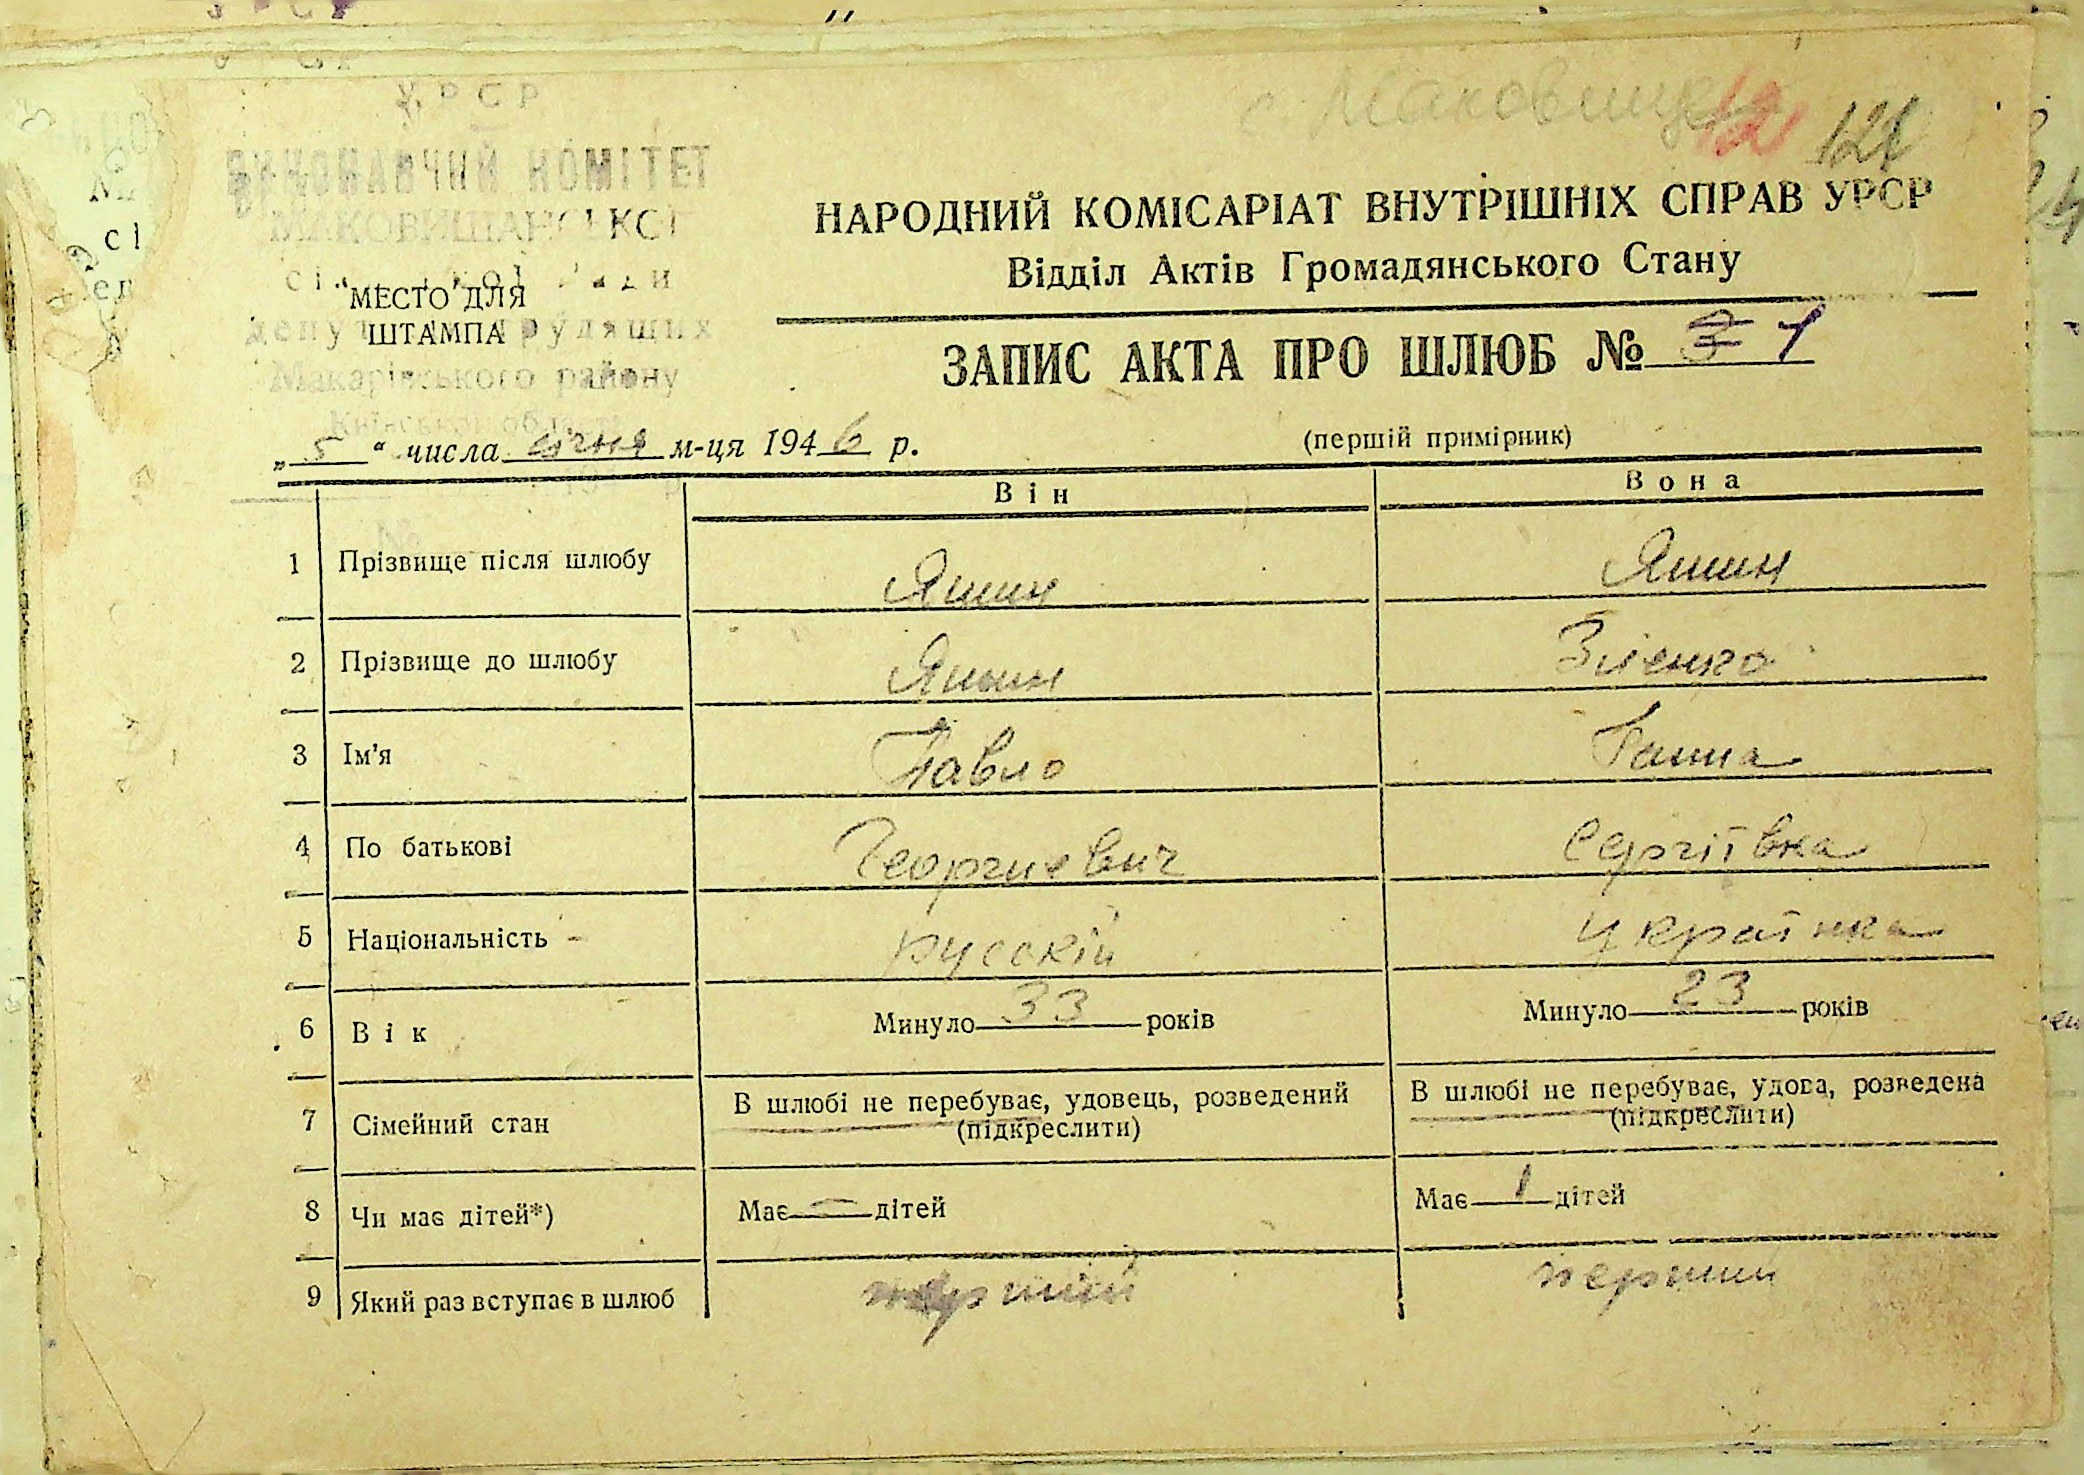 УРСР
с. Маковище 121
ВИКОНАВЧИЙ КОМІТЕТ
МАКОВИЩАНСЬКОЇ
НАРОДНИЙ КОМІСАРІАТ ВНУТРІШНІХ СПРАВ УРСР
Відділ Актів Громадянського Стану
"МЕСТО ДЛЯ
ШТАМПА
депу трудящих
Макарівського району
Київської області
ЗАПИС АКТА ПРО ШЛЮБ № 1
„5“ числа січня м-ця 1946 р.
(перший примірник)
Він Вона
1 Прізвище після шлюбу Яшин Яшин
2 Прізвище до шлюбу Яшин Зіленко
3 Ім'я Павло Ганна
4 По батькові Георгиевич Сергіївна
5 Національність - русскій українка
6 Вік Минуло 33 років Минуло 23 років
7 Сімейний стан В шлюбі не перебуває, удовець, розведений В шлюбі не перебуває, удова, розведена
(підкреслити) (підкреслити)
8 Чи має дітей*) Має — дітей Має 1 дітей
9 Який раз вступає в шлюб перший перший